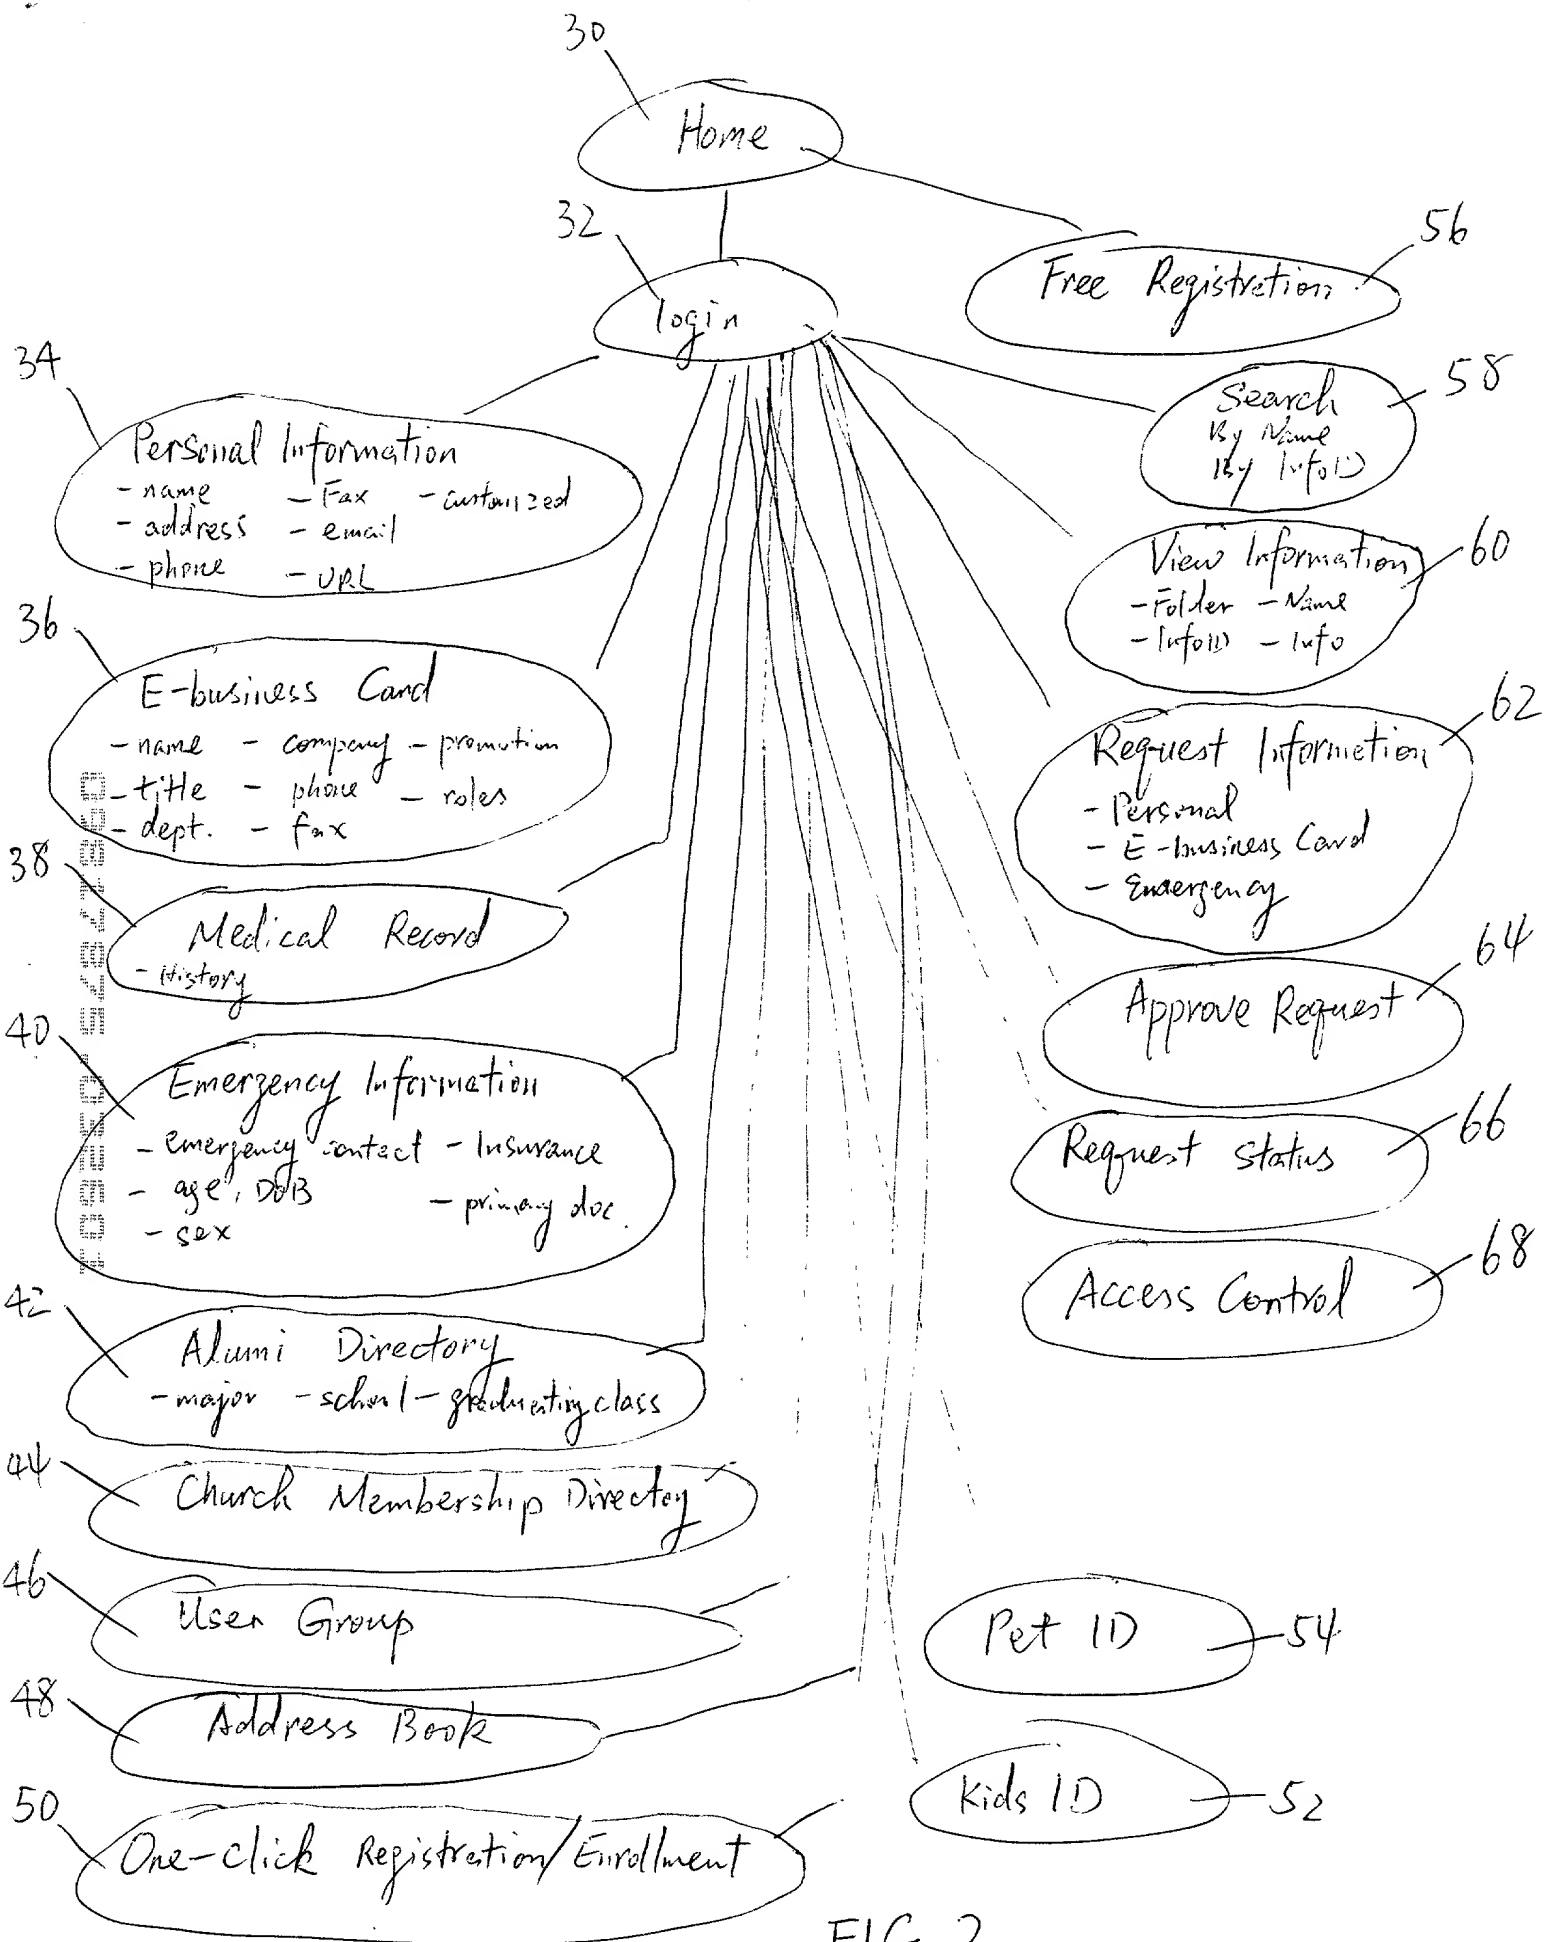 30
Home
32
login
56
Free Registration
58
Search
By Name
By InfoID
34
Personal Information
- name - Fax - customized
- address - email
- phone - URL
60
View Information
- Folder - Name
- InfoID - Info
36
E-business Card
- name - company - promotion
- title - phone - roles
- dept. - fax
62
Request Information
- Personal
- E-business Card
- Emergency
38
Medical Record
- History
64
Approve Request
40
Emergency Information
- emergency contact - Insurance
- age, DOB - primary doc.
- sex
66
Request Status
68
Access Control
42
Alumi Directory
- major - school - graduating class
44
Church Membership Directoy
46
User Group
54
Pet ID
48
Address Book
52
Kids ID
50
One-click Registration/Enrollment
FIG. 2